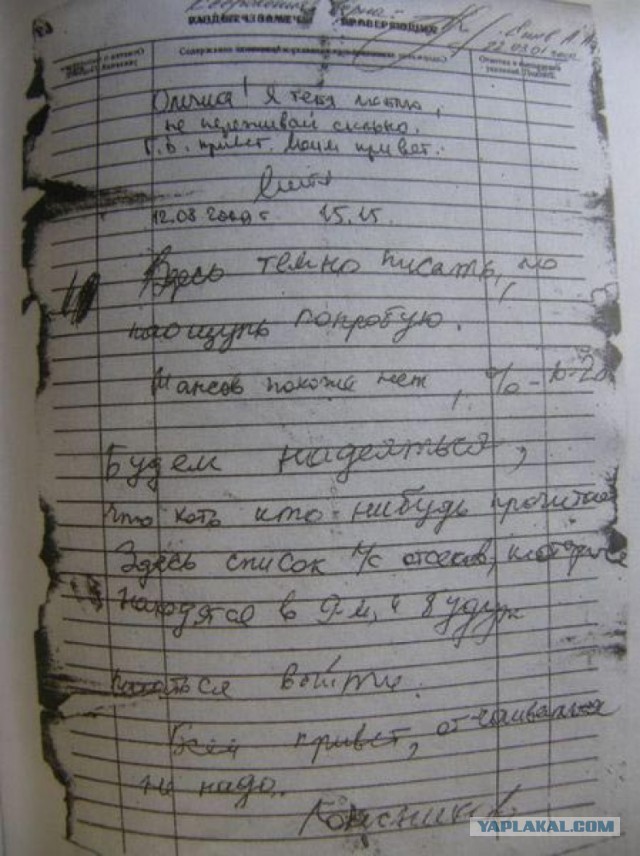 ПРОВЕРЯЮЩИХ
Олечка! Я тебя люблю,
не переживай сильно.
Г.В. привет. Моим привет.
12.08.2000 г 15.15.
Здесь темно писать, но
наощупь попробую.
Шансов похоже нет, % - 10-20
Будем надеяться,
что хоть кто-нибудь прочитает
Здесь список л/с отсеков, которые
находятся в 9-м, и будут
пытаться выйти.
Всем привет, отчаиваться
не надо.
Колесников
YAPLAKAL.COM